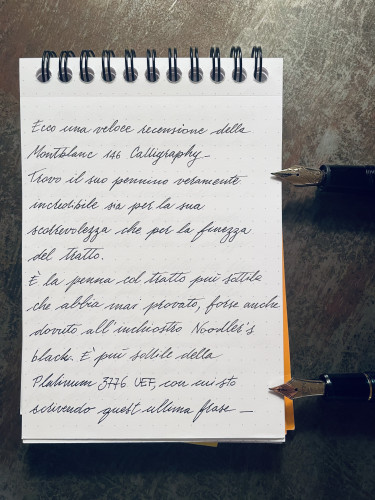 Ecco una veloce recensione della
Montblanc 146 Calligraphy_
Trovo il suo pennino veramente
incredibile sia per la sua
scorrevolezza che per la finezza
del tratto.
È la penna col tratto più sottile
che abbia mai provato, forse anche
dovuto all'inchiostro Noodler's
black. È più sottile della
Platinum 3776 UEF, con cui sto
scrivendo quest'ultima frase_